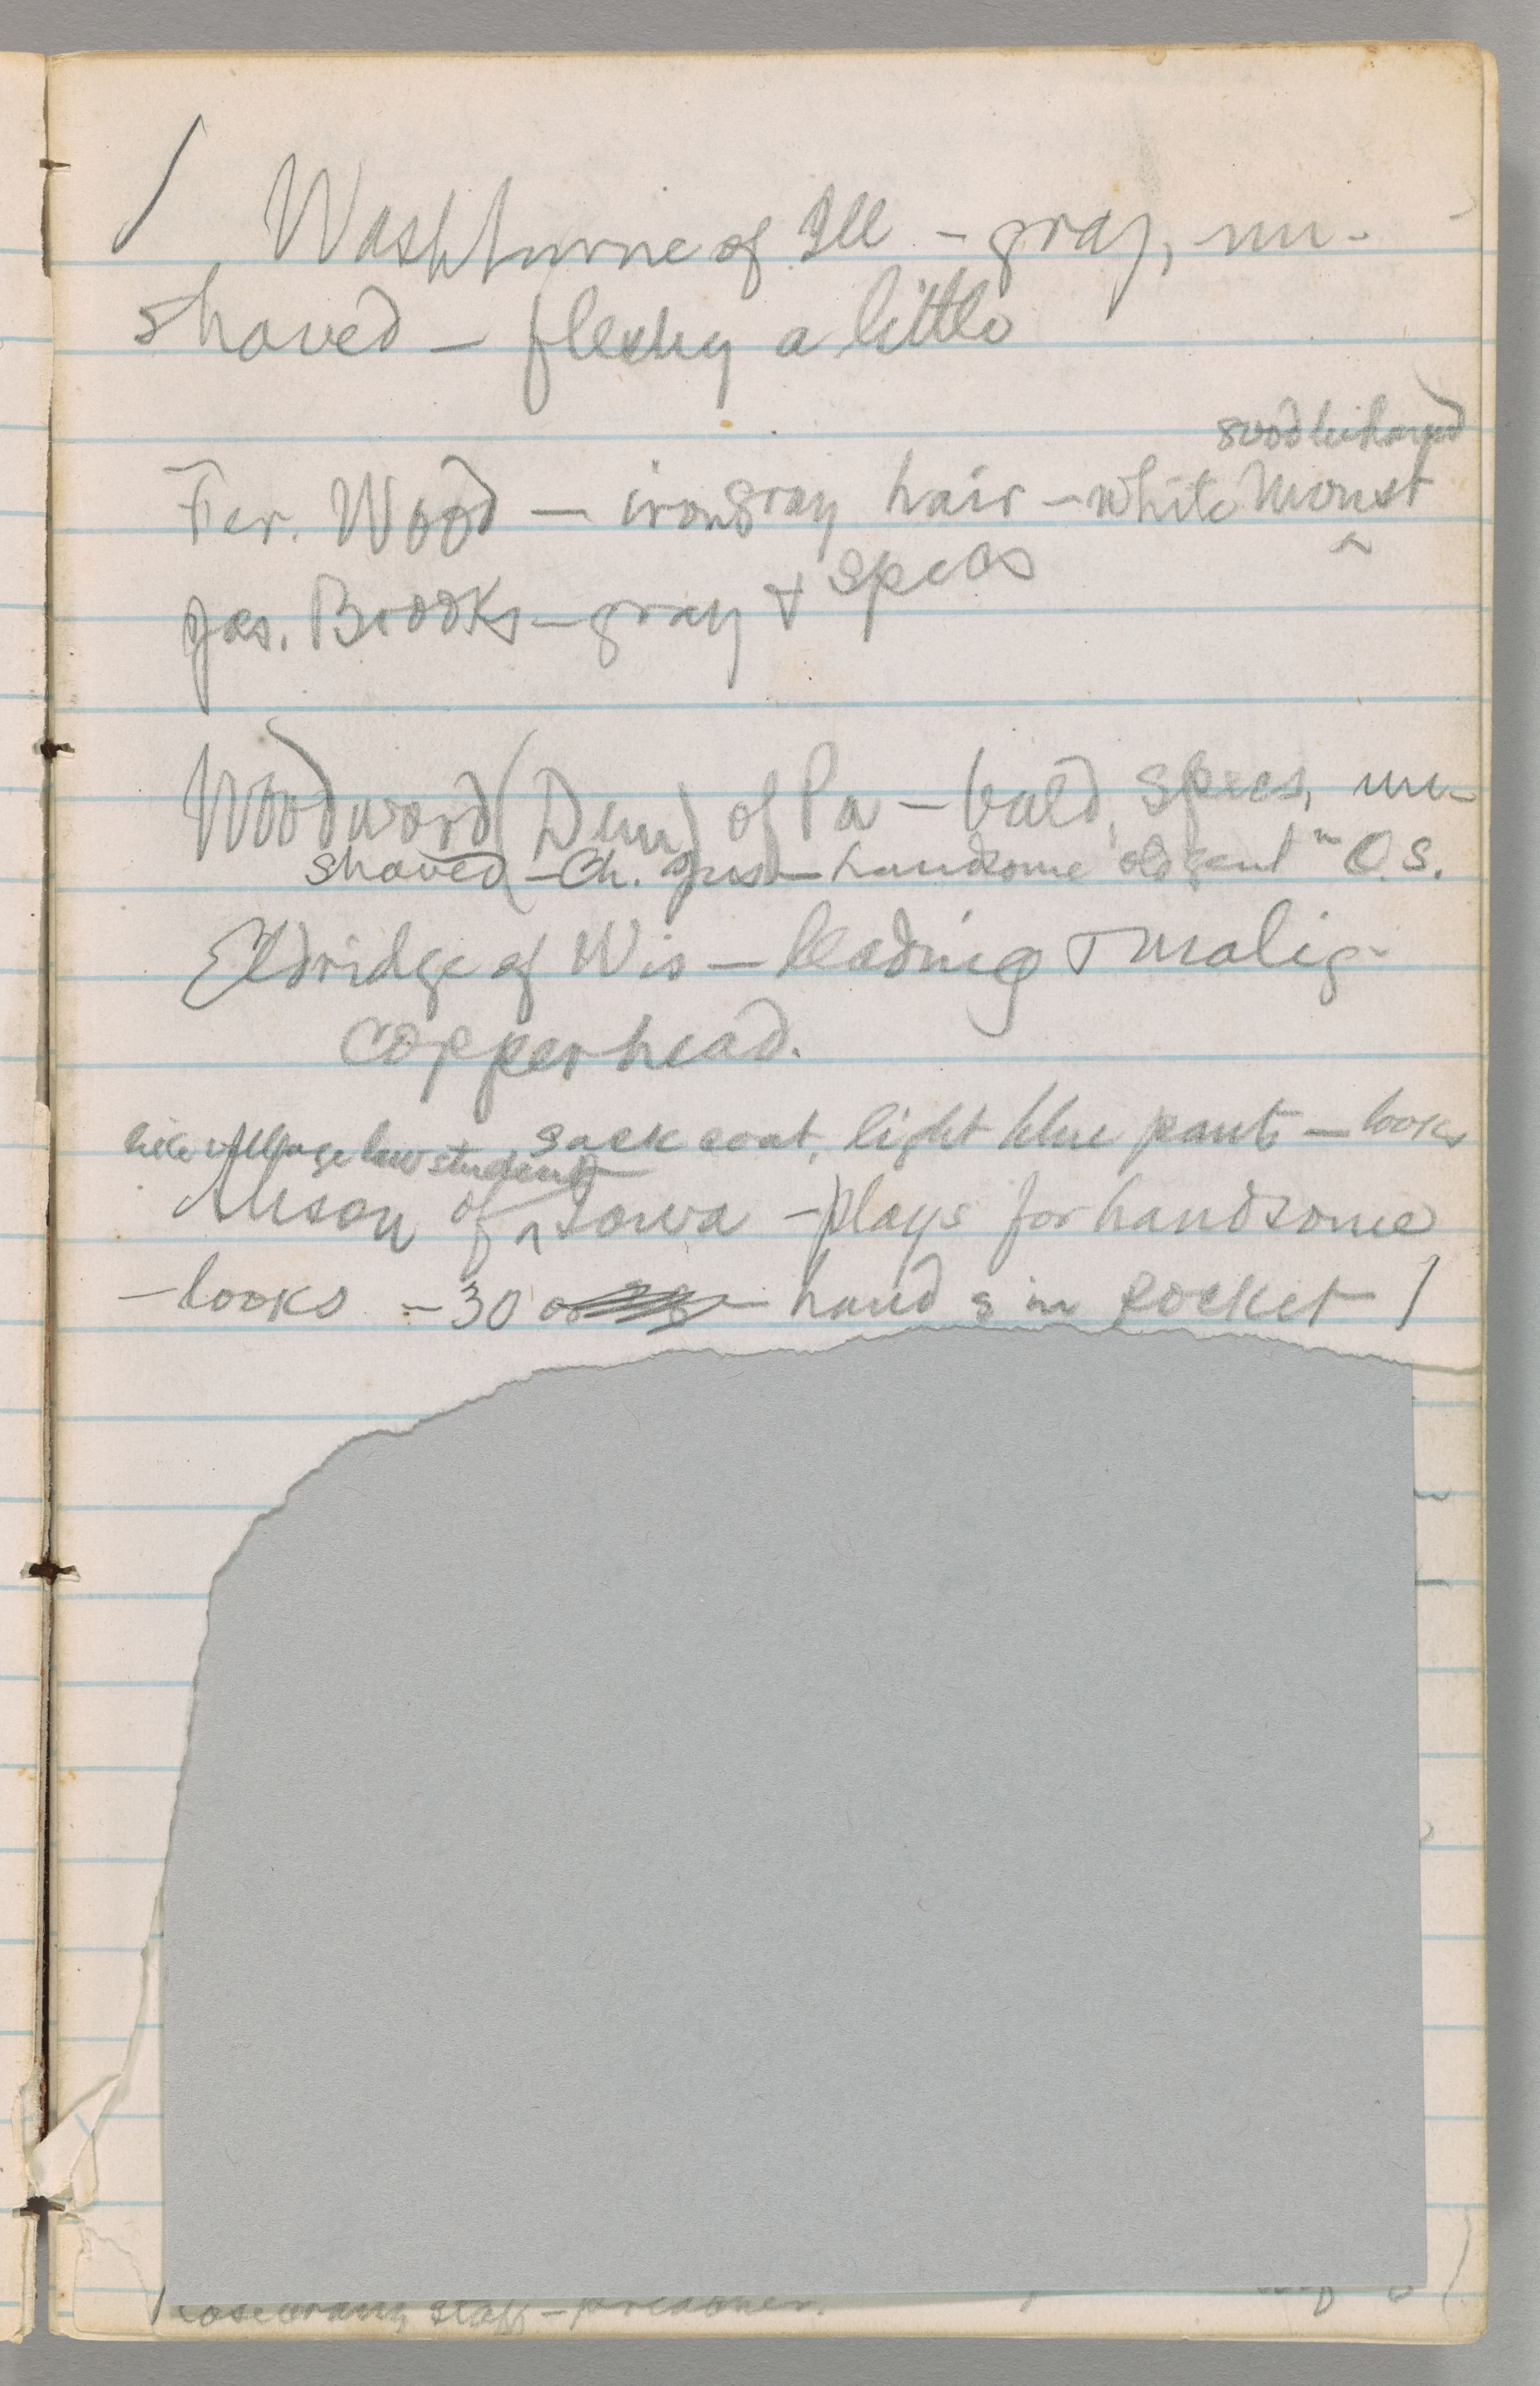 Washburne of Ill – gray, un-
shaved – fleshy a little
good behaved
Fer. Wood – iron gray hair – white moust
Jas. Brooks – gray & specs
Woodward (Dem) of Pa – bald, specs, un-
shaved – Ch. Jus – handsome old gent – O.S.
Eldridge of Wis – leading & malig-
copperhead.
sack coat, light blue pants – looks
like village law student
Alison of Iowa – plays for handsome
– looks – 30 – hands in pocket
staff – prisoner.